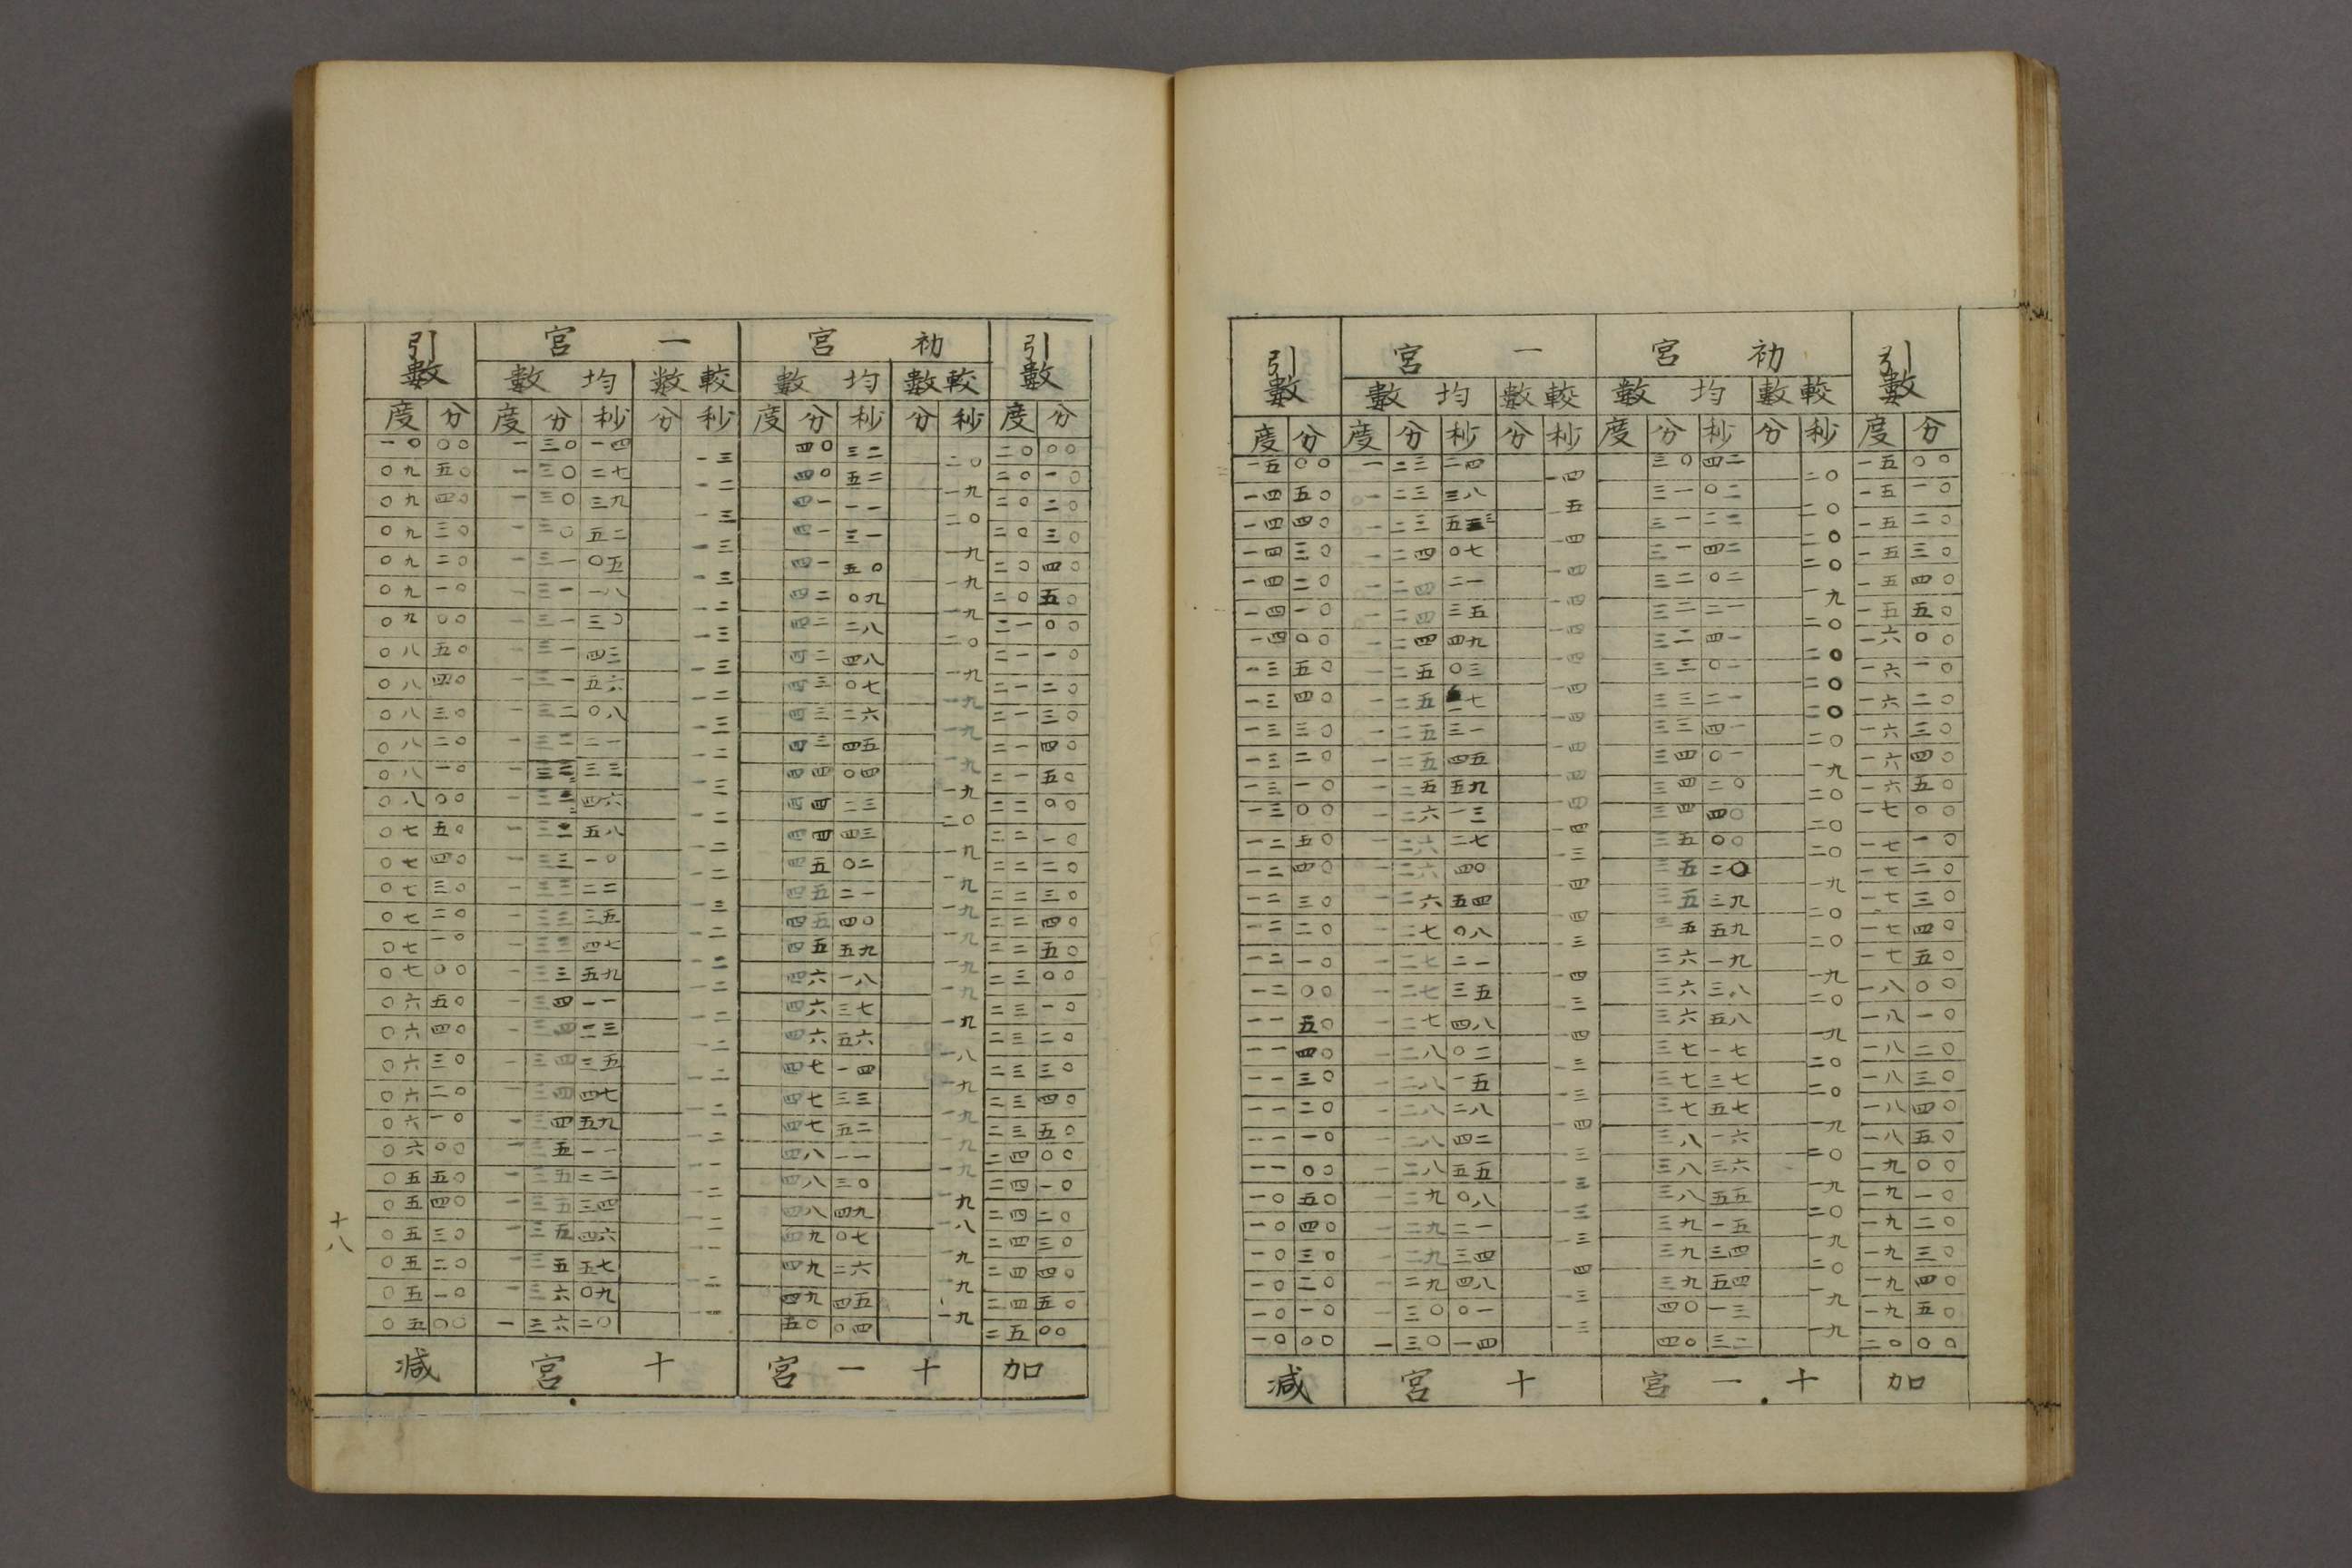 引數 初宮 一宮 引數
較數 均數 較數 均數
度 分 度 分 秒 分 秒 度 分 秒 分 秒 度 分
一五 ○○ 一 二三 二四 一四 三○ 四二 二○ 一五 ○○
一四 五○ 一 二三 三八 一五 三一 ○二 二○ 一五 一○
一四 四○ 一 二三 五三 一四 三一 二二 二○ 一五 二○
一四 三○ 一 二四 ○七 一四 三一 四二 二○ 一五 三○
一四 二○ 一 二四 二一 一四 三二 ○二 一九 一五 四○
一四 一○ 一 二四 三五 一四 三二 二一 二○ 一五 五○
一四 ○○ 一 二四 四九 一四 三二 四一 二○ 一六 ○○
一三 五○ 一 二五 ○三 一四 三三 ○一 二○ 一六 一○
一三 四○ 一 二五 一七 一四 三三 二一 二○ 一六 二○
一三 三○ 一 二五 三一 一四 三三 四一 二○ 一六 三○
一三 二○ 一 二五 四五 一四 三四 ○一 一九 一六 四○
一三 一○ 一 二五 五九 一四 三四 二○ 二○ 一六 五○
一三 ○○ 一 二六 一三 一四 三四 四○ 二○ 一七 ○○
一二 五○ 一 二六 二七 一三 三五 ○○ 二○ 一七 一○
一二 四○ 一 二六 四○ 一四 三五 二○ 一九 一七 二○
一二 三○ 一 二六 五四 一四 三五 三九 二○ 一七 三○
一二 二○ 一 二七 ○八 一三 三五 五九 二○ 一七 四○
一二 一○ 一 二七 二一 一四 三六 一九 一九 一七 五○
一二 ○○ 一 二七 三五 一三 三六 三八 二○ 一八 ○○
一一 五○ 一 二七 四八 一四 三六 五八 一九 一八 一○
一一 四○ 一 二八 ○二 一三 三七 一七 二○ 一八 二○
一一 三○ 一 二八 一五 一三 三七 三七 二○ 一八 三○
一一 二○ 一 二八 二八 一四 三七 五七 一九 一八 四○
一一 一○ 一 二八 四二 一三 三八 一六 二○ 一八 五○
一一 ○○ 一 二八 五五 一三 三八 三六 一九 一九 ○○
一○ 五○ 一 二九 ○八 一三 三八 五五 二○ 一九 一○
一○ 四○ 一 二九 二一 一三 三九 一五 一九 一九 二○
一○ 三○ 一 二九 三四 一四 三九 三四 二○ 一九 三○
一○ 二○ 一 二九 四八 一三 三九 五四 一九 一九 四○
一○ 一○ 一 三○ ○一 一三 四○ 一三 一九 一九 五○
一○ ○○ 一 三○ 一四 四○ 三二 二○ ○○
加 十一宮 十宮 減
引數 初宮 一宮 引數
較數 均數 較數 均數
度 分 度 分 秒 分 秒 度 分 秒 分 秒 度 分
一○ ○○ 一 三○ 一四 一三 四○ 三二 二○ 二○ ○○
○九 五○ 一 三○ 二七 一二 四○ 五二 一九 二○ 一○
○九 四○ 一 三○ 三九 一三 四一 一一 二○ 二○ 二○
○九 三○ 一 三○ 五二 一三 四一 三一 一九 二○ 三○
○九 二○ 一 三一 ○五 一三 四一 五○ 一九 二○ 四○
○九 一○ 一 三一 一八 一二 四二 ○九 一九 二○ 五○
○九 ○○ 一 三一 三○ 一三 四二 二八 二○ 二一 ○○
○八 五○ 一 三一 四三 一三 四二 四八 一九 二一 一○
○八 四○ 一 三一 五六 一二 四三 ○七 一九 二一 二○
○八 三○ 一 三二 ○八 一三 四三 二六 一九 二一 三○
○八 二○ 一 三二 二一 一二 四三 四五 一九 二一 四○
○八 一○ 一 三二 三三 一三 四四 ○四 一九 二一 五○
○八 ○○ 一 三二 四六 一二 四四 二三 二○ 二二 ○○
○七 五○ 一 三二 五八 一二 四四 四三 一九 二二 一○
○七 四○ 一 三三 一○ 一二 四五 ○二 一九 二二 二○
○七 三○ 一 三三 二二 一三 四五 二一 一九 二二 三○
○七 二○ 一 三三 三五 一二 四五 四○ 一九 二二 四○
○七 一○ 一 三三 四七 一二 四五 五九 一九 二二 五○
○七 ○○ 一 三三 五九 一二 四六 一八 一九 二三 ○○
○六 五○ 一 三四 一一 一二 四六 三七 一九 二三 一○
○六 四○ 一 三四 二三 一二 四六 五六 一八 二三 二○
○六 三○ 一 三四 三五 一二 四七 一四 一九 二三 三○
○六 二○ 一 三四 四七 一二 四七 三三 一九 二三 四○
○六 一○ 一 三四 五九 一二 四七 五二 一九 二三 五○
○六 ○○ 一 三五 一一 一一 四八 一一 一九 二四 ○○
○五 五○ 一 三五 二二 一二 四八 三○ 一九 二四 一○
○五 四○ 一 三五 三四 一二 四八 四九 一八 二四 二○
○五 三○ 一 三五 四六 一一 四九 ○七 一九 二四 三○
○五 二○ 一 三五 五七 一二 四九 二六 一九 二四 四○
○五 一○ 一 三六 ○九 四九 四五 一九 二四 五○
○五 ○○ 一 三六 二○ 五○ ○四 二五 ○○
加 十一宮 十宮 減
十八